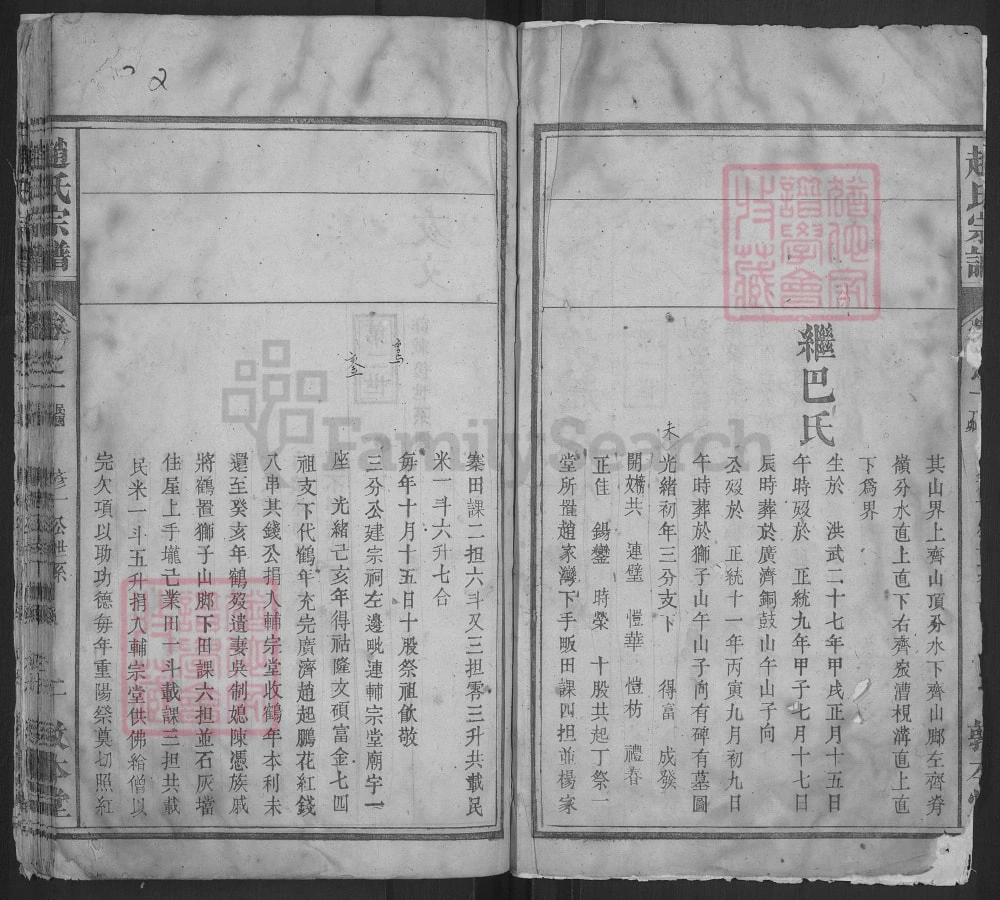 其山界上齊山頂分水下齊山腳左齊脊
嶺分水直上直下右齊嵗漕梘溝直上直
下爲界
繼巴氏
生於 洪武二十七年甲戌正月十五日
午時歿於 正統九年甲子七月十七日
辰時葬於廣濟銅鼓山午山子向
公歿於 正統十一年丙寅九月初九日
午時葬於獅子山午山子向有碑有墓圖
未
光緒初年三分支下 得富 成發
開妣共 連璧 愷華 愷枋 禮春
正佳 錫鑾 時榮 十股共起丁祭一
堂所置趙家灣下手畈田課四担並楊家
寨田課二担六斗又三担零三升共載民
米一斗六升七合
每年十月十五日十股祭祖飲敬
三分公建宗祠左邊毗連輔宗堂廟宇一
座 光緒己亥年得祜隆文碩富金七四
祖支下代鶴年充完廣濟趙起鵬花紅錢
八串其錢公捐入輔宗堂收鶴年本利未
還至癸亥年鶴歿遺妻吳制媳陳憑族戚
將鶴置獅子山腳下田課六担並石灰壋
住屋上手壠己業田一斗載課三担共載
民米一斗五升捐入輔宗堂供佛給僧以
完欠項以助功德每年重陽祭奠切照紅
趙氏宗譜
卷之一
二
敦本堂
趙氏宗譜
2
FamilySearch